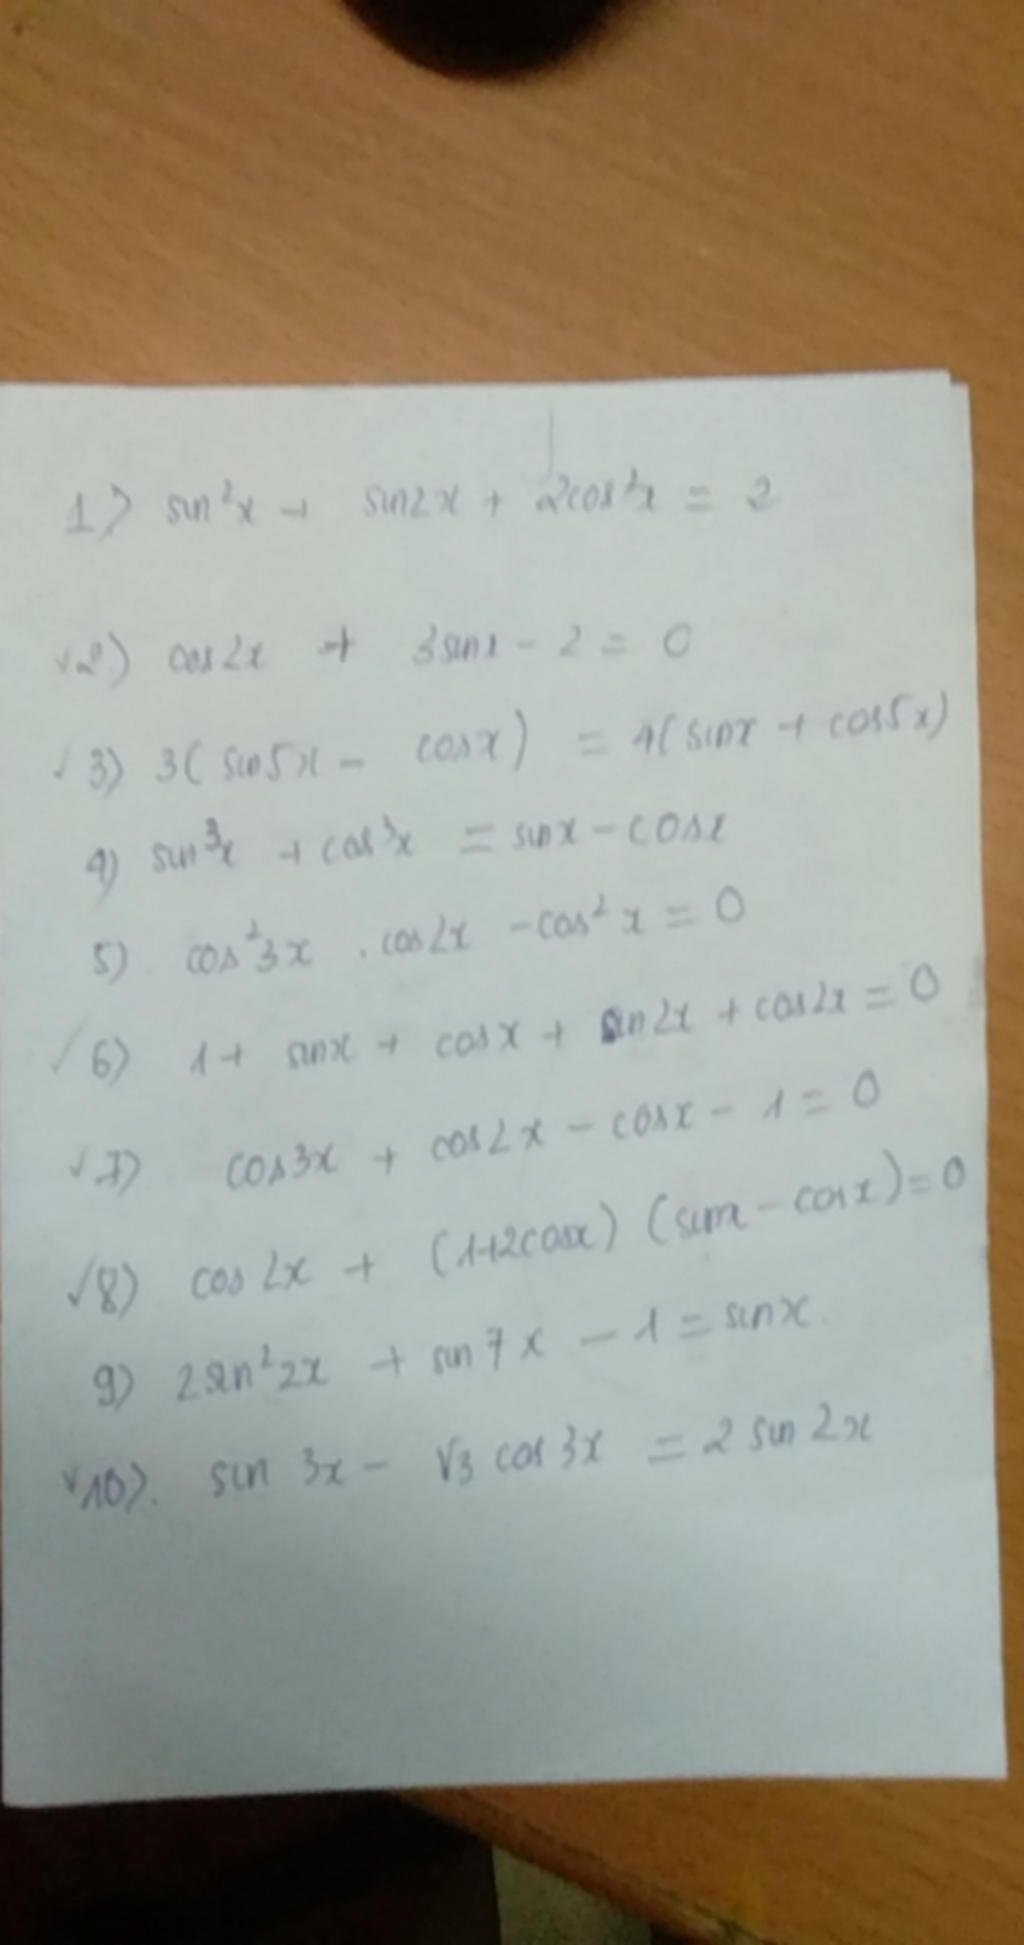 1) sin²x + sin2x + 2cos²x = 2
√2) cos2x + 3sinx - 2 = 0
√3) 3(sin5x - cosx) = 4(sinx + cos5x)
4) sin³x + cos³x = sinx - cosx
5) cos²3x . cos2x - cos²x = 0
√6) 1 + sinx + cosx + sin2x + cos2x = 0
√7) cos3x + cos2x - cosx - 1 = 0
√8) cos2x + (1+2cosx) (sinx - cosx) = 0
9) 2sin²2x + sin7x - 1 = sinx
√10). sin 3x - √3 cos3x = 2 sin 2x